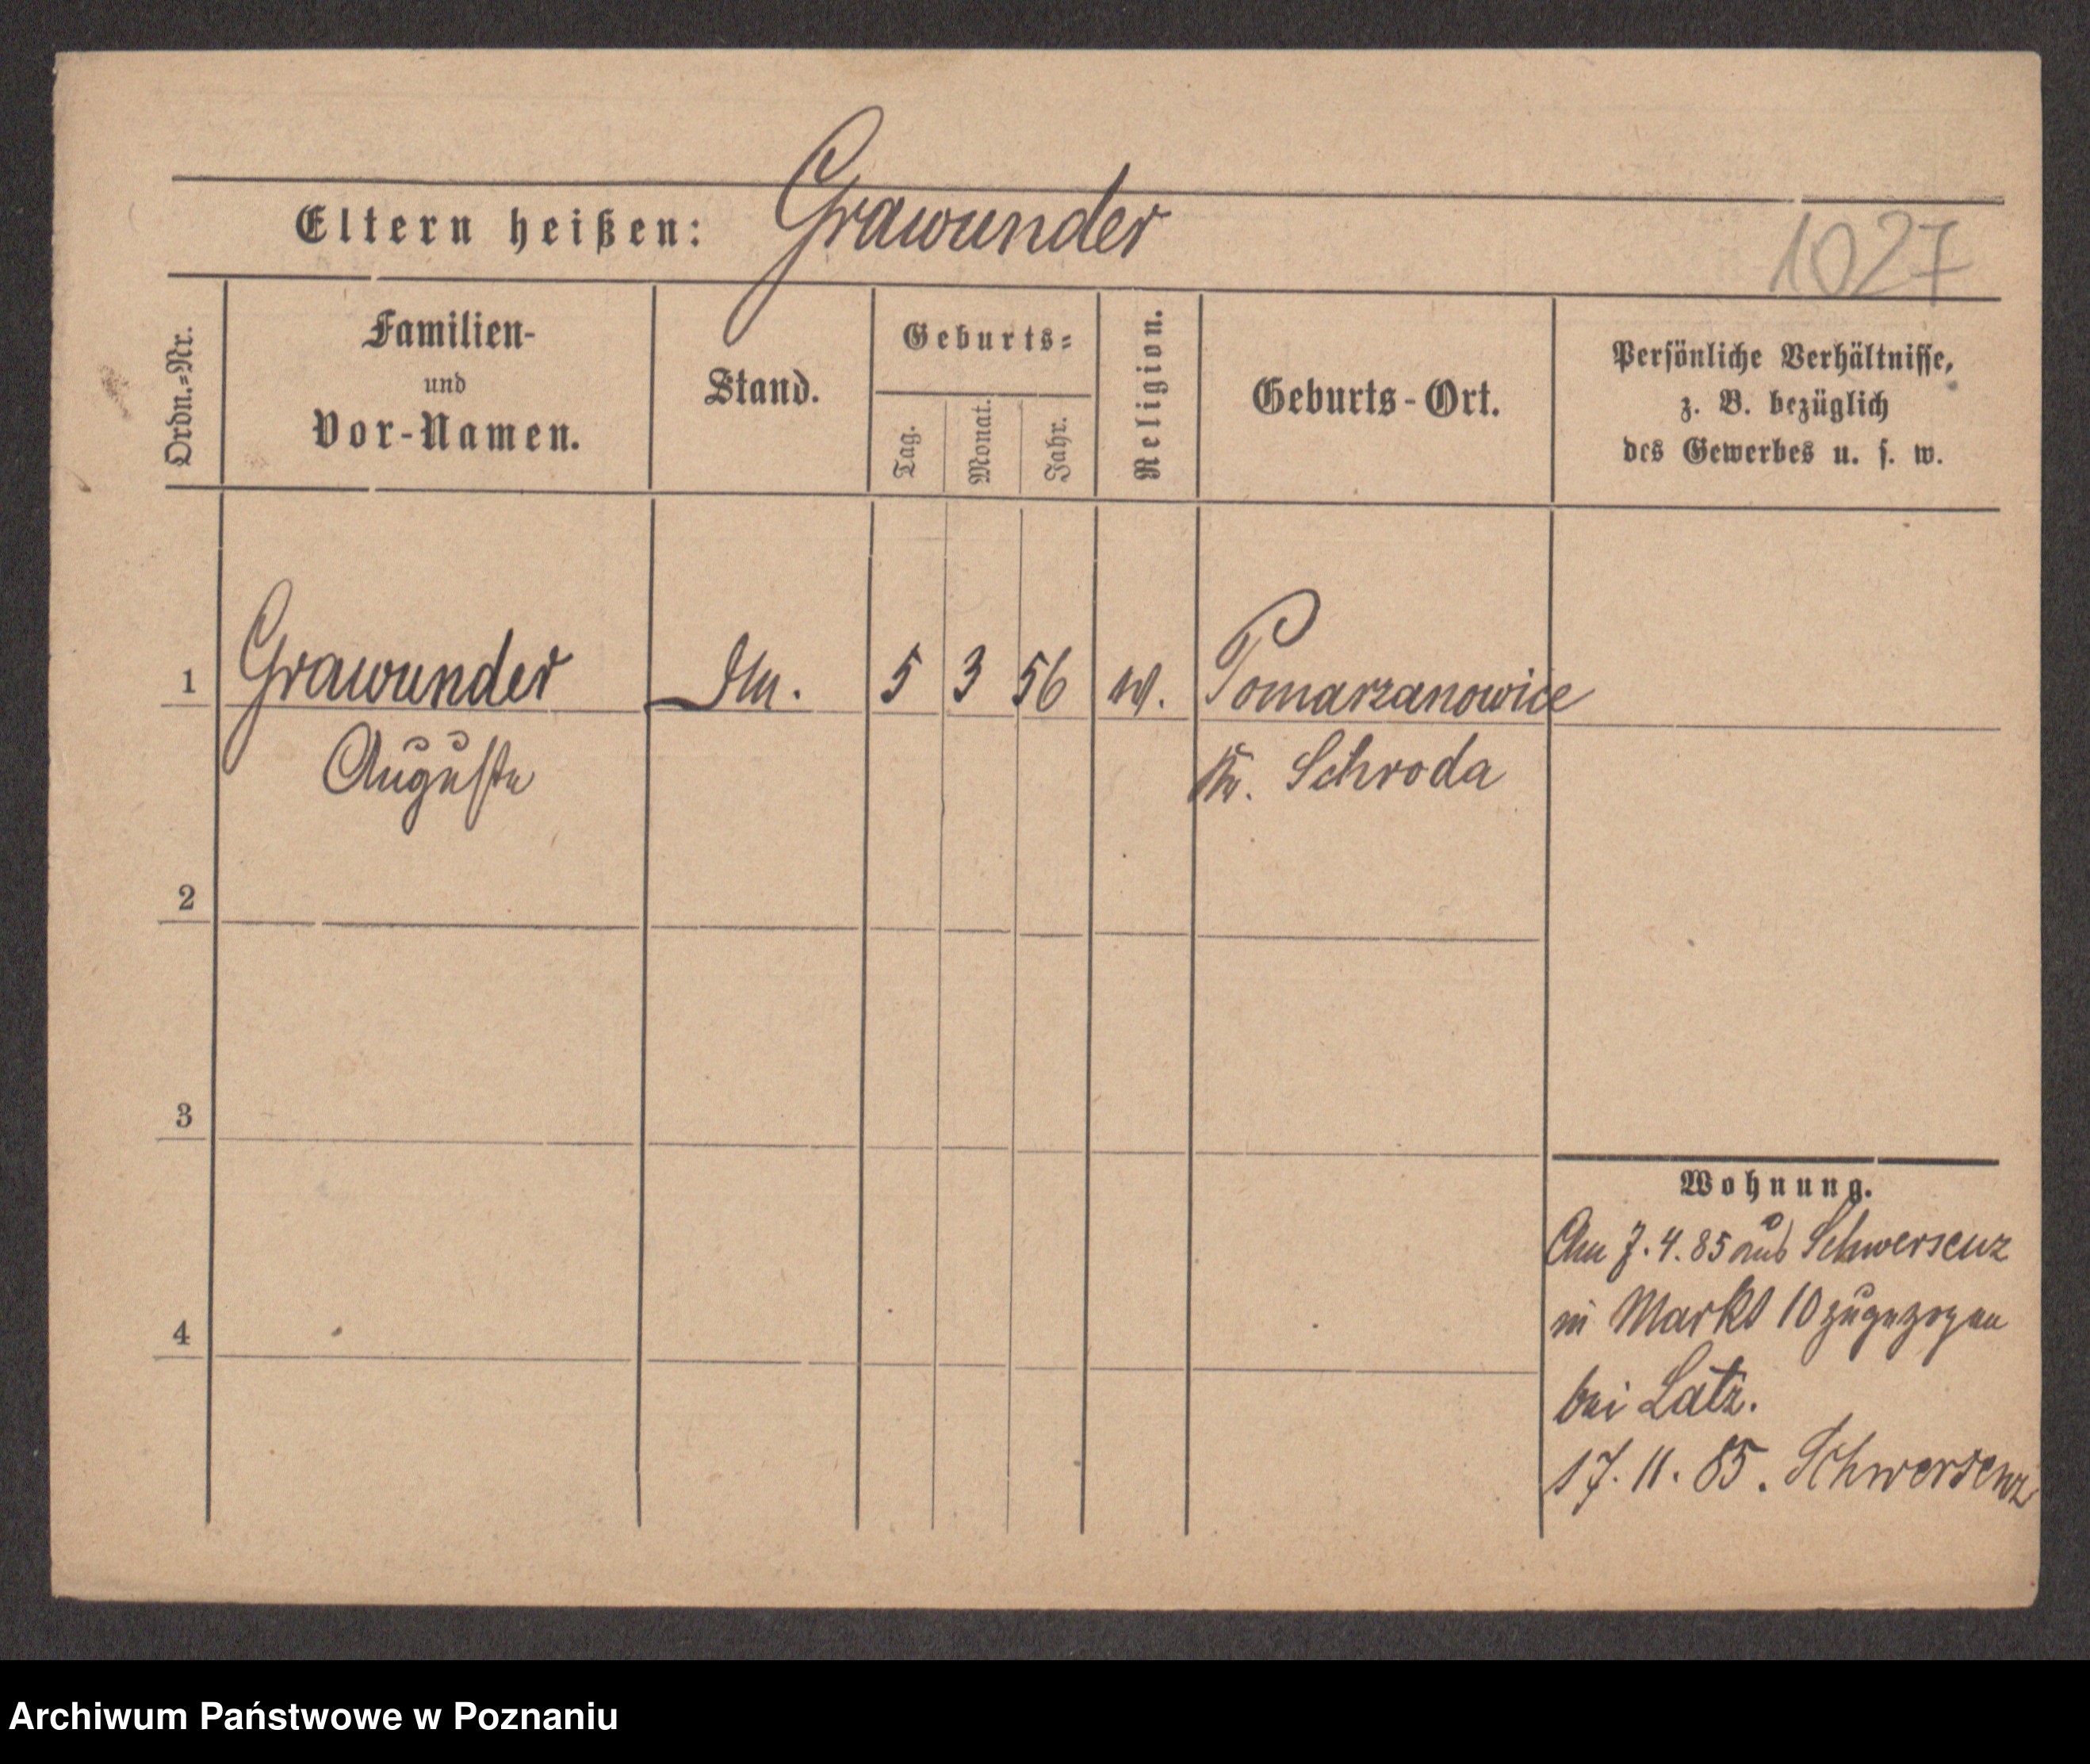 Eltern heißen: Grawunder
1027
Ordn.=Nr.
Familien-
und
Vor-Namen.
Stand.
Geburts=
Tag.
Monat.
Jahr.
Religion.
Geburts-Ort.
Persönliche Verhältnisse,
z. B. bezüglich
des Gewerbes u. s. w.
1 Grawunder 5 3 56 Pomarzanowice
Auguste Kr. Schroda
2
3
4
Wohnung.
Am 7. 4. 85 aus Schwersenz
in Markt 10 zugezogen
bei Latz.
17. 11. 85. Schwersenz
Archiwum Państwowe w Poznaniu